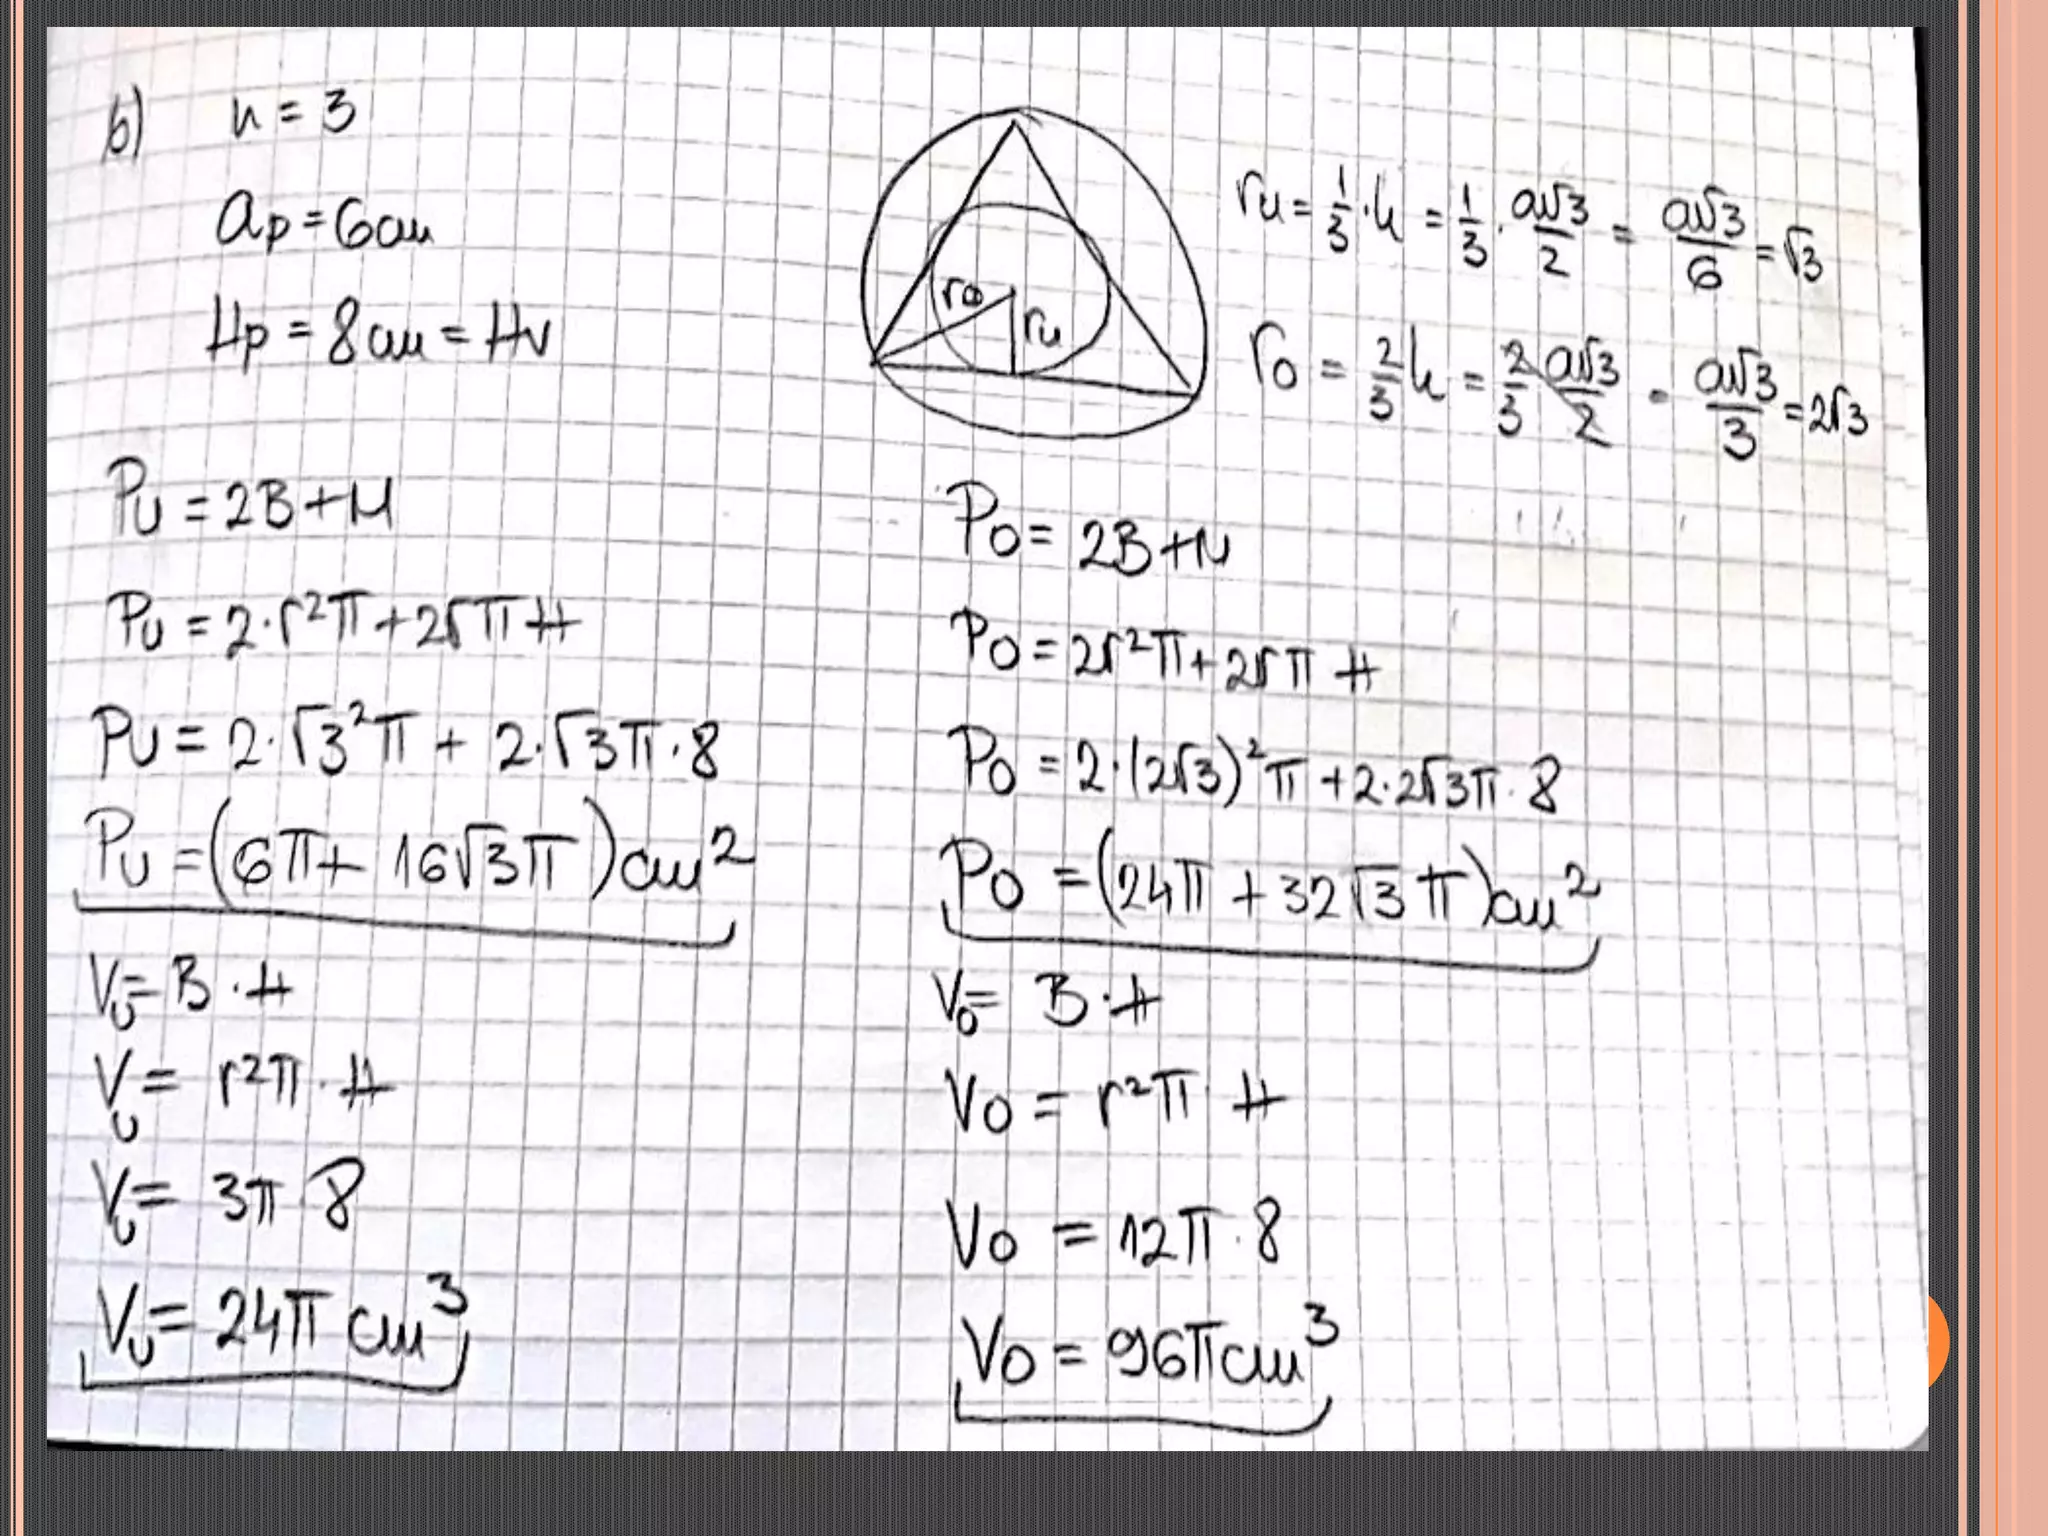 b) n = 3
ap = 6cm
Hp = 8cm = Hv
ro
ru
ru = 1/3 · h = 1/3 · a√3/2 = a√3/6 = √3
ro = 2/3 h = 2/3 a√3/2 = a√3/3 = 2√3
Pu = 2B + M
Pu = 2·r²π + 2rπH
Pu = 2·√3²π + 2·√3π·8
Pu = (6π + 16√3π)cm²
Vu = B·H
Vu = r²π·H
Vu = 3π 8
Vu = 24π cm³
Po = 2B + M
Po = 2r²π + 2rπ H
Po = 2·(2√3)²π + 2·2√3π·8
Po = (24π + 32√3π)cm²
Vo = B·H
Vo = r²π H
Vo = 12π·8
Vo = 96πcm³